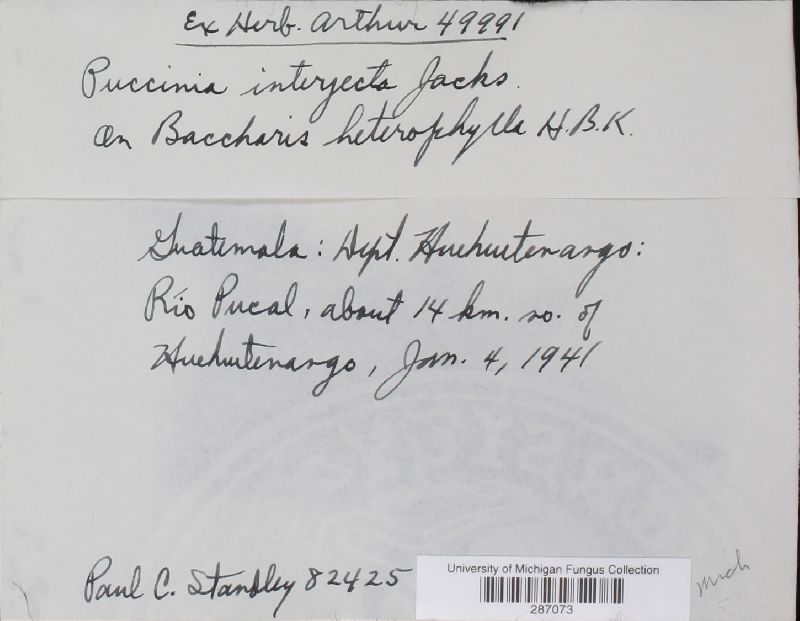 Ex Herb. Arthur 49991
Puccinia interjecta Jacks.
On Baccharis heterophylla H.B.K.
Guatemala: Dept. Huehuetenango:
Río Pucal, about 14 km. so. of
Huehuetenango, Jan. 4, 1941
Paul C. Standley 82425
University of Michigan Fungus Collection
287073
Mich